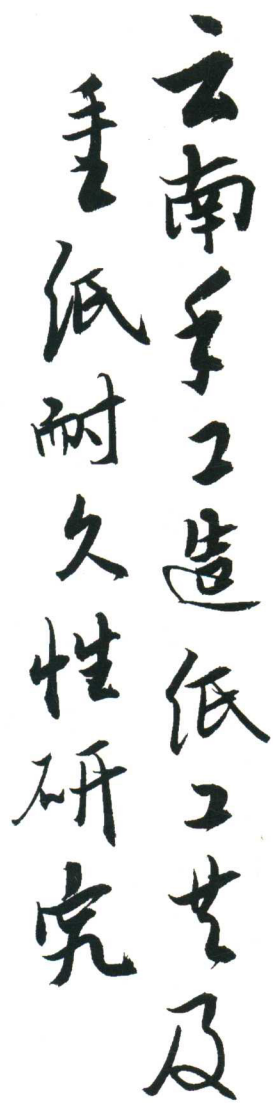 云南手工造纸工艺及
手工纸耐久性研究